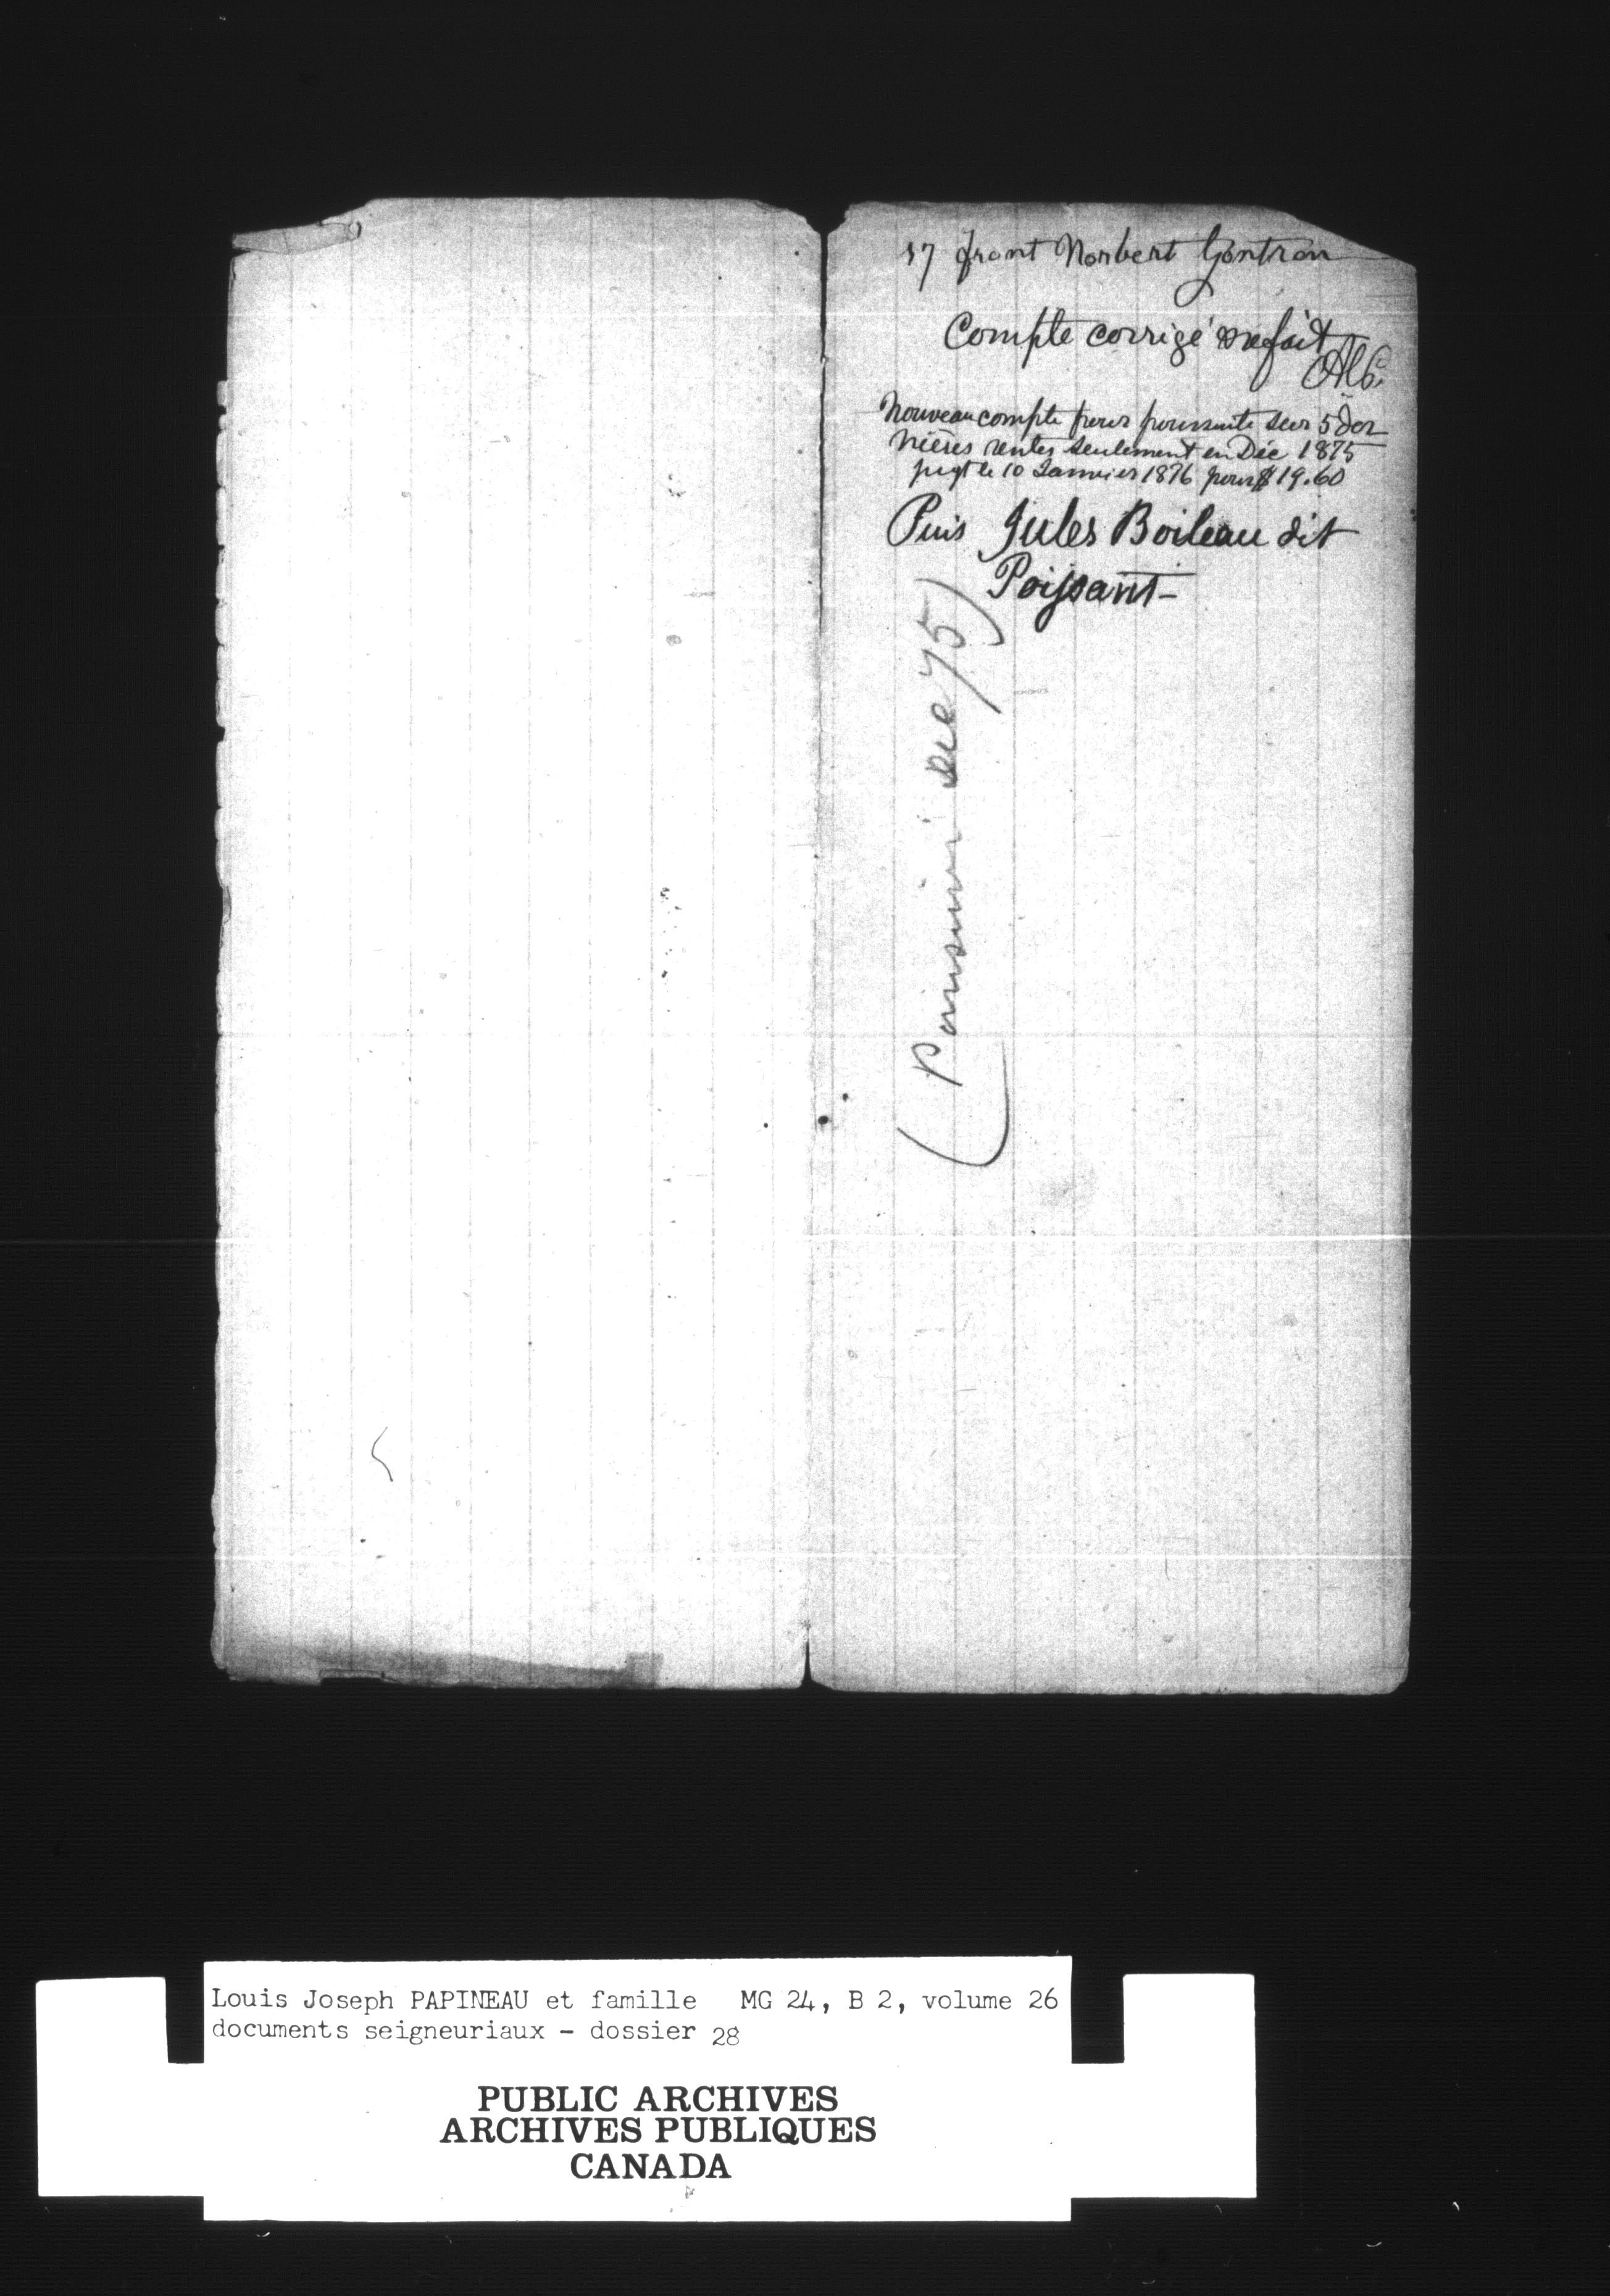 17 front Norbert Gontran
Compte corrigé & refait
Nouveau compte pour poursuite sur 5 der
nières rentes seulement en Déc 1875
jugt le 10 Janvier 1876 pour $ 19.60
Puis Jules Boileau dit
Poissant -
(Poursuivi déc 75)
Louis Joseph PAPINEAU et famille MG 24, B 2, volume 26
documents seigneuriaux - dossier 28
PUBLIC ARCHIVES
ARCHIVES PUBLIQUES
CANADA